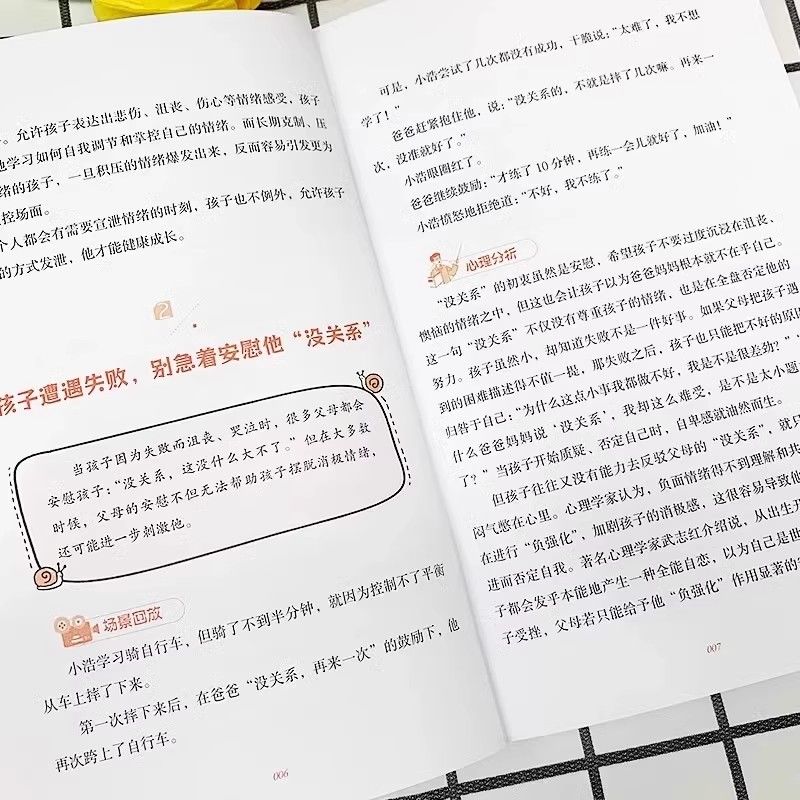 。允许孩子表达出悲伤、沮丧、伤心等情绪感受，孩子
地学习如何自我调节和掌控自己的情绪。而长期克制、压
绪的孩子，一旦积压的情绪爆发出来，反而容易引发更为
控场面。
个人都会有需要宣泄情绪的时刻，孩子也不例外，允许孩子
的方式发泄，他才能健康成长。
2
孩子遭遇失败，别急着安慰他“没关系”
当孩子因为失败而沮丧、哭泣时，很多父母都会
安慰孩子：“没关系，这没什么大不了。”但在大多数
时候，父母的安慰不但无法帮助孩子摆脱消极情绪，
还可能进一步刺激他。
场景回放
小浩学习骑自行车，但骑了不到半分钟，就因为控制不了平衡
从车上摔了下来。
第一次摔下来后，在爸爸“没关系，再来一次”的鼓励下，他
再次跨上了自行车。
006
可是，小浩尝试了几次都没有成功，干脆说：“太难了，我不想
学了！”
爸爸赶紧抱住他，说：“没关系的，不就是摔了几次嘛。再来一
次，没准就好了。”
小浩眼圈红了。
爸爸继续鼓励：“才练了10分钟，再练一会儿就好了，加油！”
小浩愤怒地拒绝道：“不好，我不练了。”
心理分析
“没关系”的初衷虽然是安慰，希望孩子不要过度沉浸在沮丧、
懊恼的情绪之中，但这也会让孩子以为爸爸妈妈根本就不在乎自己。
这一句“没关系”不仅没有尊重孩子的情绪，也是在全盘否定他的
努力。孩子虽然小，却知道失败不是一件好事。如果父母把孩子遇
到的困难描述得不值一提，那失败之后，孩子也只能把不好的原因
归咎于自己：“为什么这点小事我都做不好，我是不是很差劲？”“
什么爸爸妈妈说‘没关系’，我却这么难受，是不是太小题
了？”当孩子开始质疑、否定自己时，自卑感就油然而生。
但孩子往往又没有能力去反驳父母的“没关系”，就只
闷气憋在心里。心理学家认为，负面情绪得不到理解和共
在进行“负强化”，加剧孩子的消极感，这很容易导致他
进而否定自我。著名心理学家武志红介绍说，从出生开
子都会发乎本能地产生一种全能自恋，以为自己是世
子受挫，父母若只能给予他“负强化”作用显著的
007